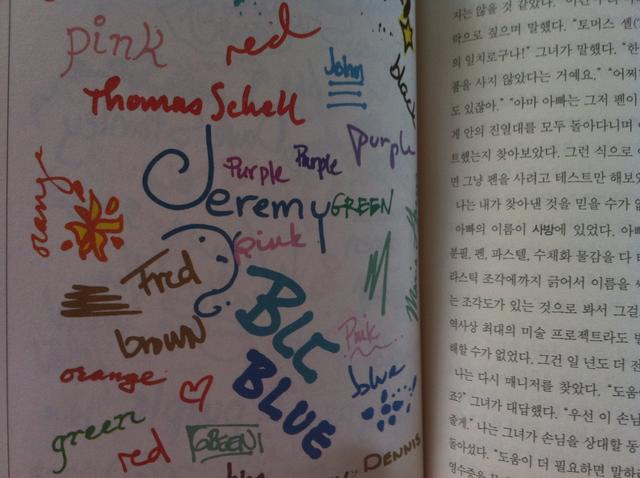 pink
red
John
black
Thomas Schell
purple
Purple
Purple
orange
Jeremy
GREEN
pink
Fred
BLC
brown
Pink
BLUE
blue
orange
green
red
GREEN
DENNIS
락으로 짚으며 말했다. "토머스 셸(
의 일치로구나!" 그녀가 말했다. "한
품을 사지 않았다는 거예요." "어쩌
도 있잖아." "아마 아빠는 그저 펜이
게 안의 진열대를 모두 돌아다니며
트했는지 찾아보았다. 그런 식으로
면 그냥 펜을 사려고 테스트만 해보았
나는 내가 찾아낸 것을 믿을 수가 없
아빠의 이름이 사방에 있었다. 아
분필, 펜, 파스텔, 수채화 물감을 다
라스틱 조각에까지 긁어서 이름을
는 조각도가 있는 것으로 봐서 그걸
역사상 최대의 미술 프로젝트라도
해할 수가 없었다. 그건 일 년도 더 전
나는 다시 매니저를 찾았다. "도움
죠?" 그녀가 대답했다. "우선 이 손님
줄게." 나는 그녀가 손님을 상대할 동
돌아섰다. "도움이 더 필요하면 말하